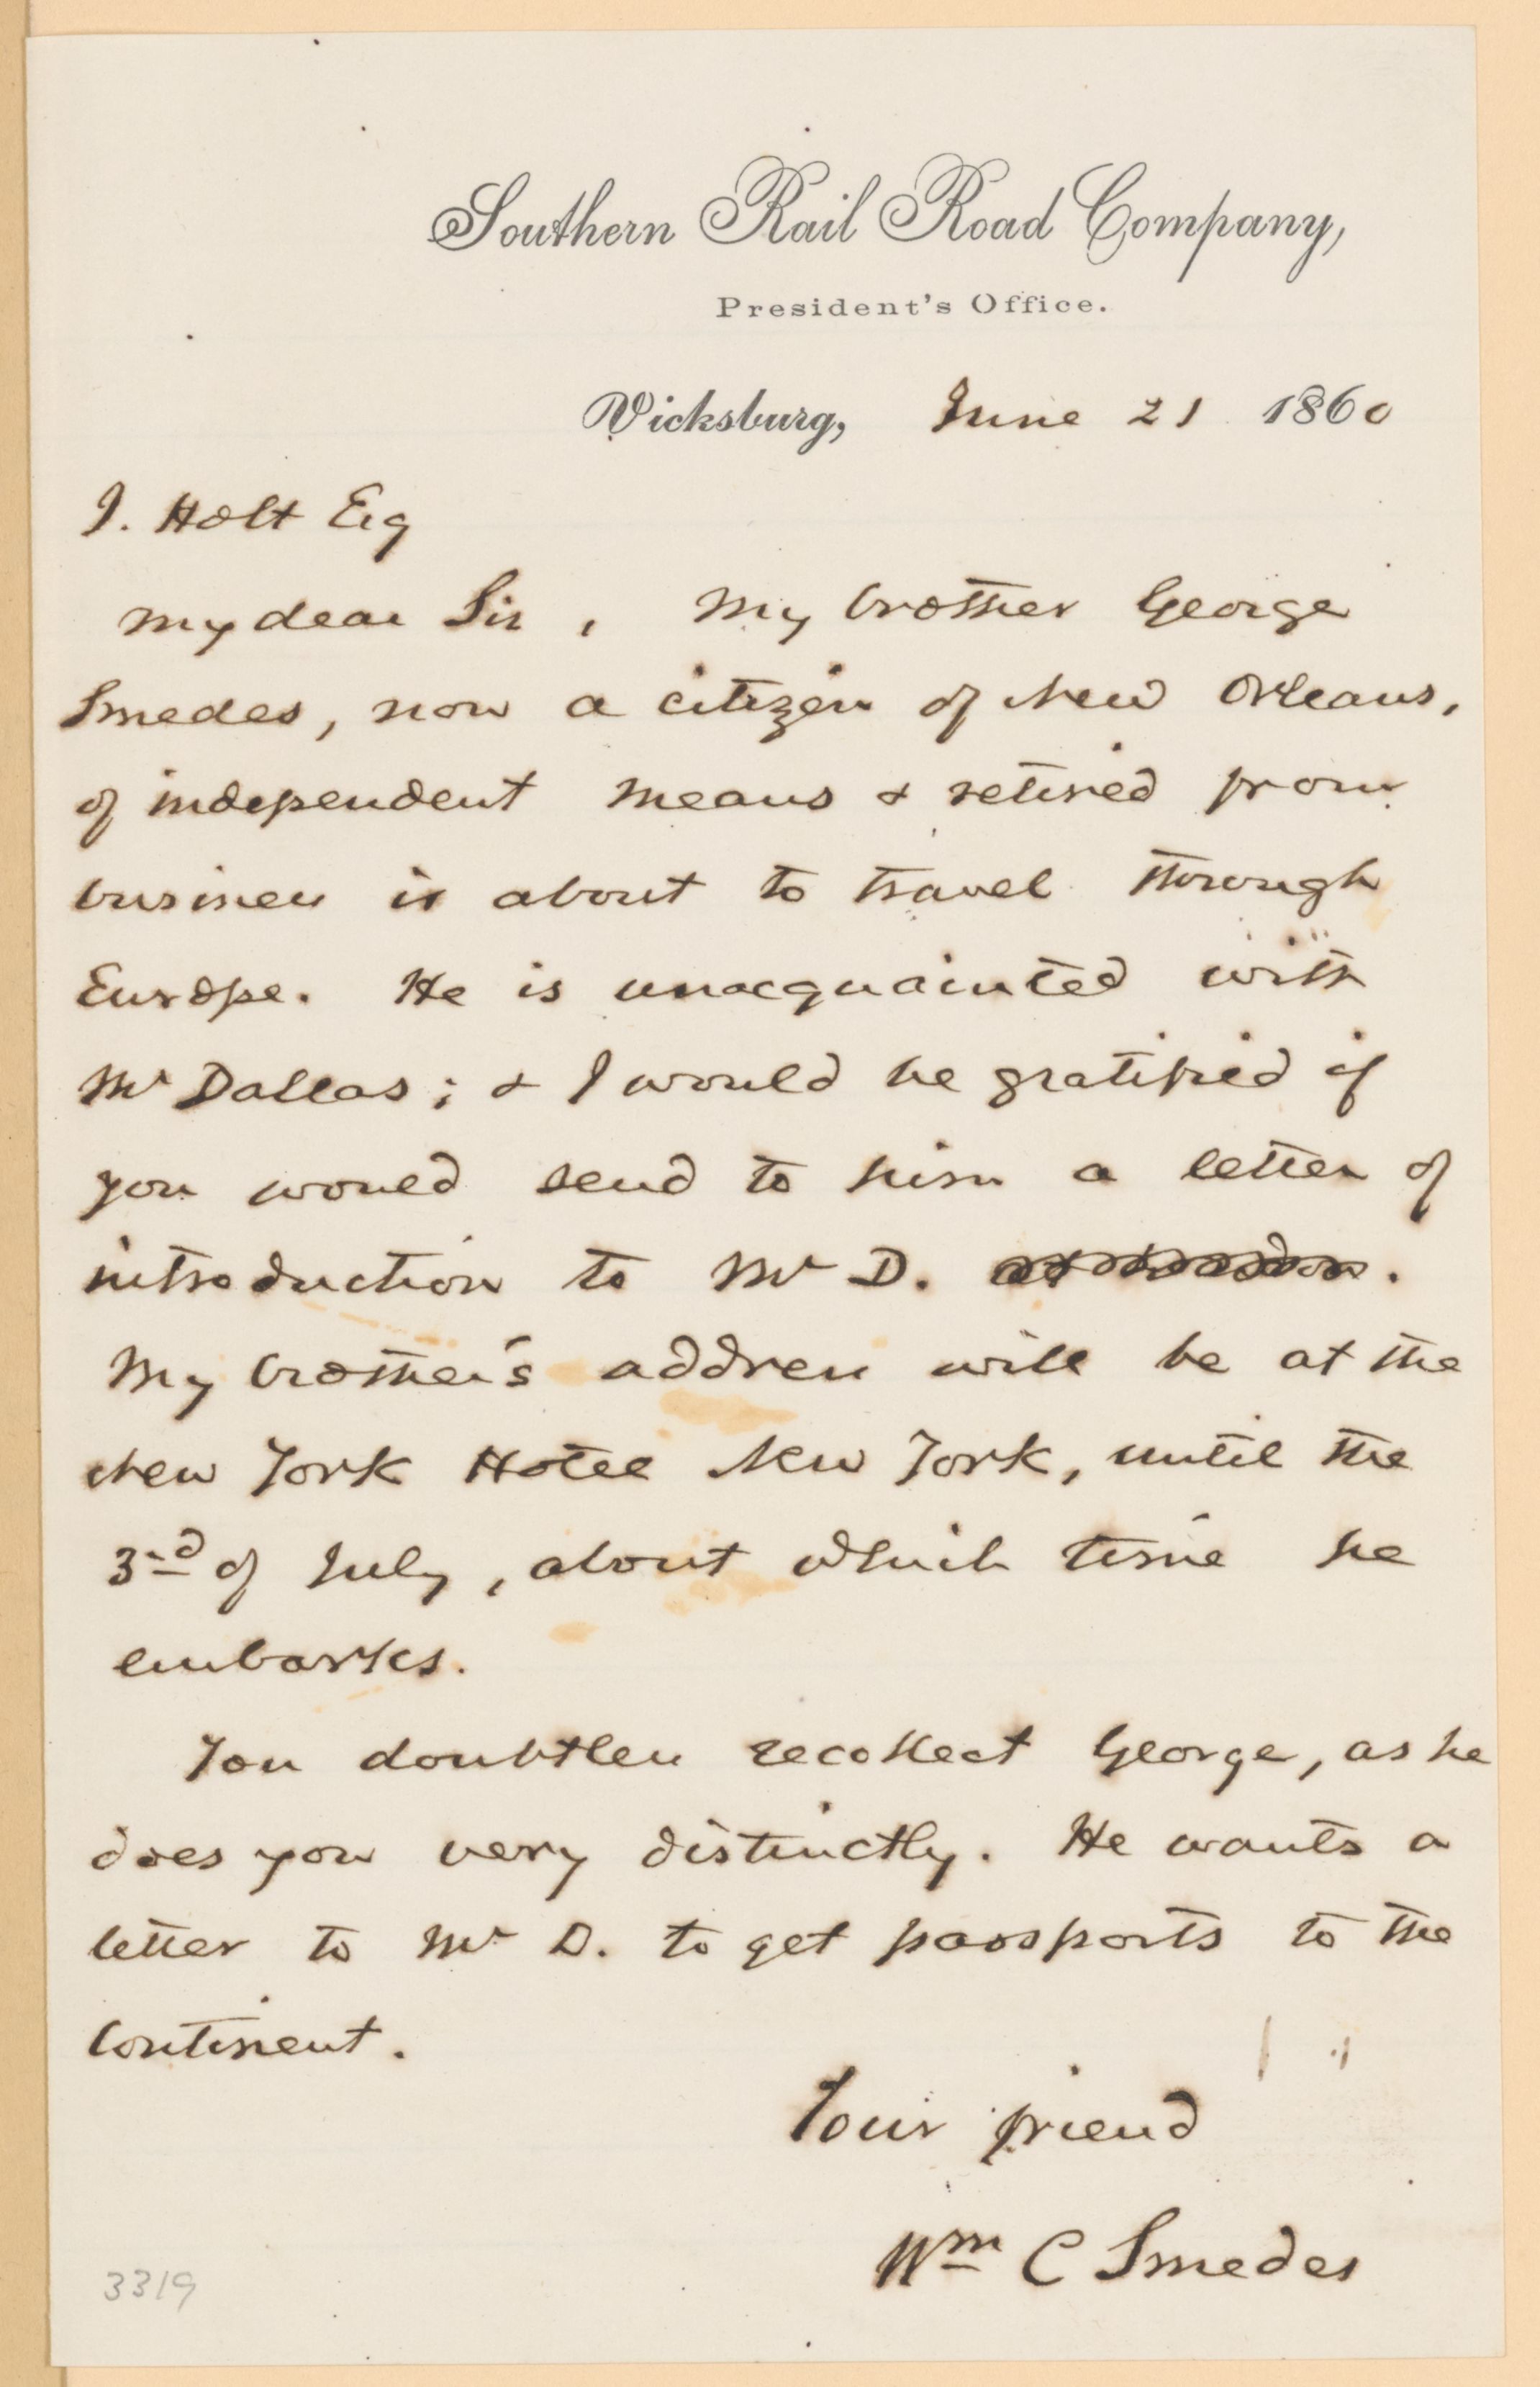 Southern Rail Road Company,
President's Office.
Vicksburg, June 21 1860
J. Holt Esq
My dear Sir, My brother George
Smedes, now a citizen of New Orleans,
of independent means & retired from
business is about to travel through
Europe. He is unacquainted with
Mr Dallas; & I would be gratified if
you would send to him a letter of
introduction to Mr D. .
My brother's address will be at the
New York Hotel New York, until the
3rd of July, about which time he
embarks.
You doubtless recollect George, as he
does you very distinctly. He wants a
letter to Mr D. to get passports to the
Continent.
Your friend
Wm C Smedes
3319